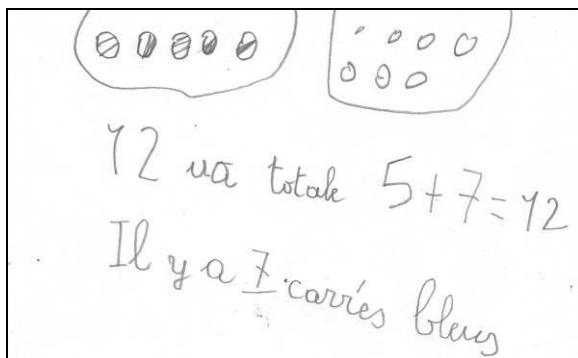 12 va totale 5+7=12
Il y a 7 carrés bleus